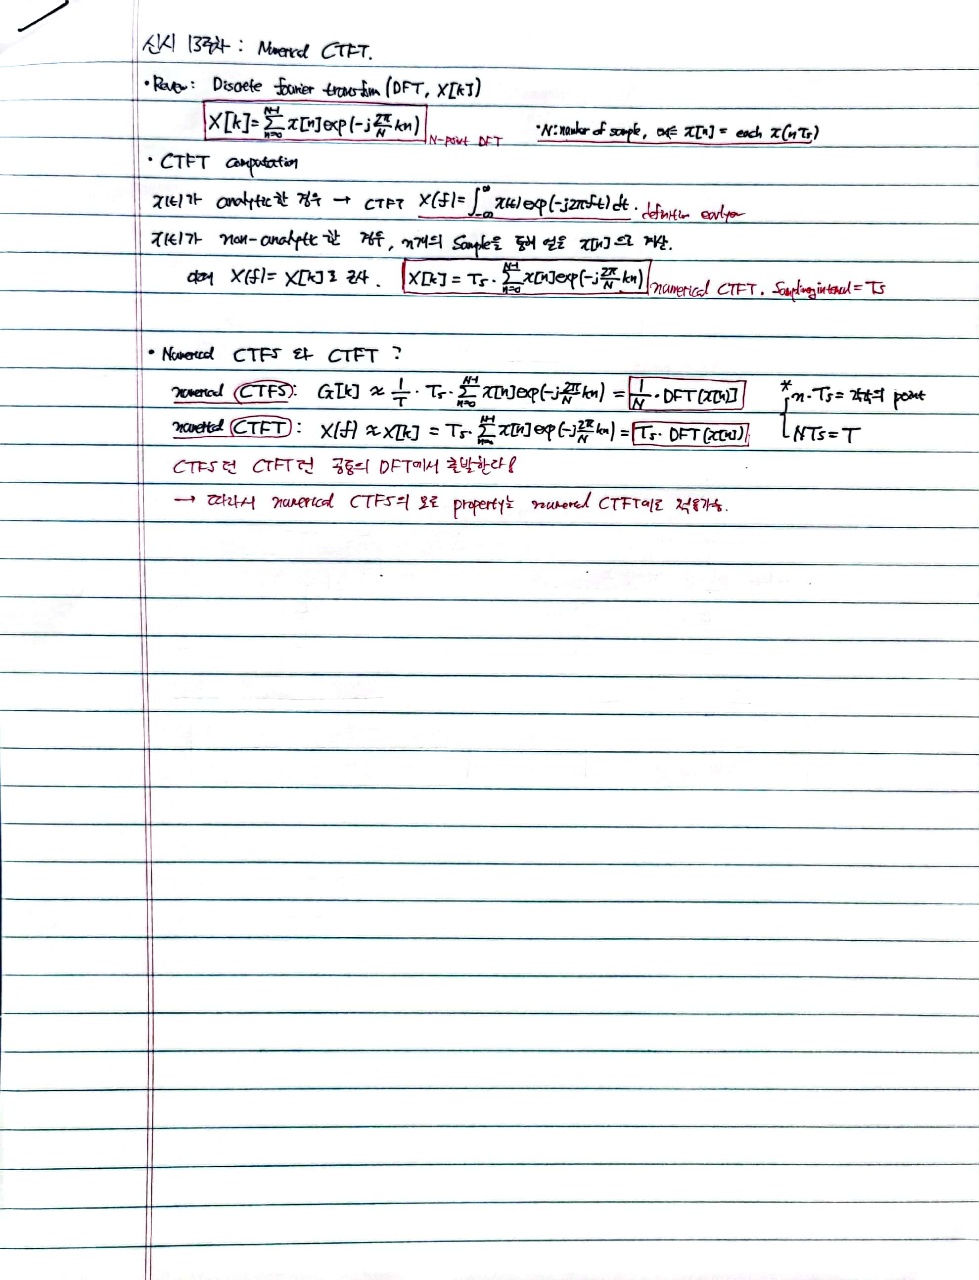 신시 13주차 : Numerical CTFT.
• Review : Discrete fourier transform (DFT, X[k])
X[k] = Σ_{n=0}^{N-1} x[n] exp(-j 2π/N kn) N-point DFT •N: number of sample, x[n] = each x(nTs)
• CTFT computation
x(t)가 analytic한 경우 → CTFT X(f) = ∫_{-∞}^{∞} x(t) exp(-j2πft) dt . definition
x(t)가 non-analytic 한 경우, n개의 Sample을 통해 얻은 x[n]으로 계산.
X(f) = X[k]로 근사. X[k] = Ts · Σ_{n=0}^{N-1} x[n] exp(-j 2π/N kn) numerical CTFT. Sampling interval = Ts
• Numerical CTFS 와 CTFT ?
numerical CTFS : G[k] ≈ 1/T · Ts · Σ_{n=0}^{N-1} x[n] exp(-j 2π/N kn) = 1/N · DFT(x[n]) * n·Ts = 각각의 point
numerical CTFT : X(f) ≈ X[k] = Ts · Σ_{n=0}^{N-1} x[n] exp(-j 2π/N kn) = Ts · DFT(x[n]) NTs = T
CTFS던 CTFT던 공통의 DFT에서 출발한다!
→ 따라서 numerical CTFS의 모든 property는 numerical CTFT에도 적용가능.